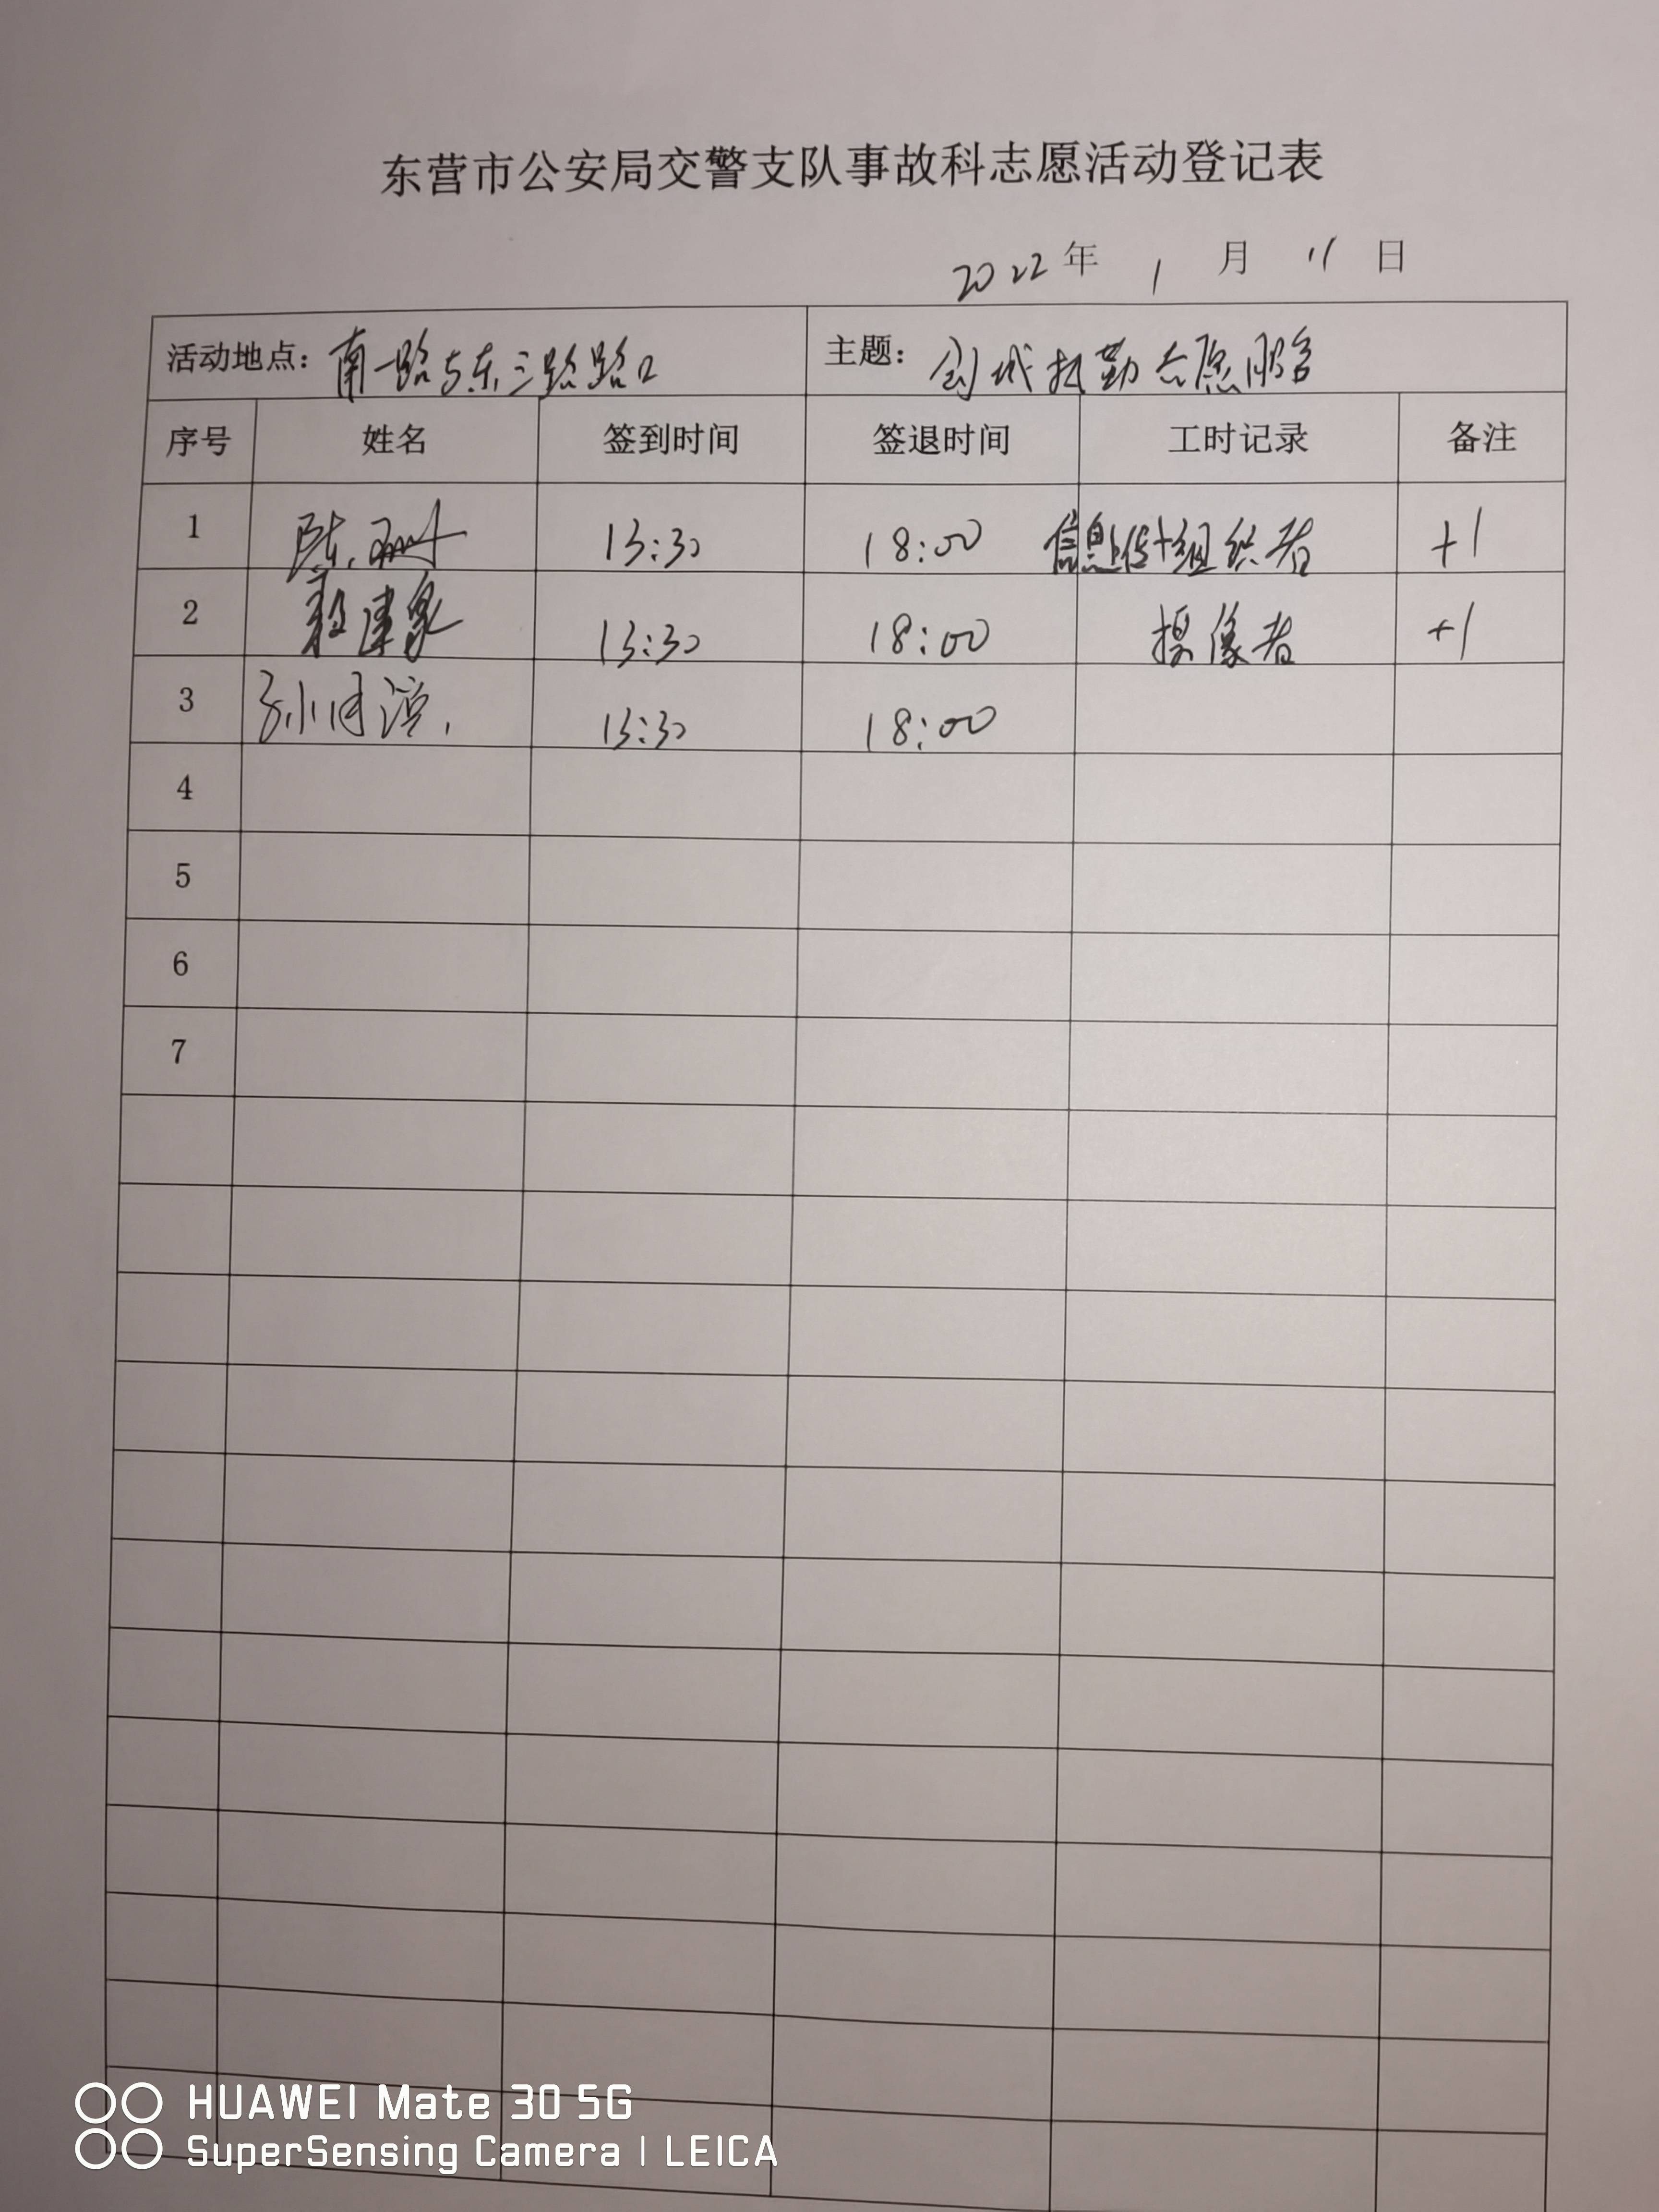 东营市公安局交警支队事故科志愿活动登记表
2022 年 1 月 11 日
活动地点: 南一路与东三路路口 主题: 创城执勤志愿服务
序号 姓名 签到时间 签退时间 工时记录 备注
1 陈珊 13:30 18:00 信息上传+组织者 +1
2 13:30 18:00 摄像者 +1
3 孙 13:30 18:00
4
5
6
7
HUAWEI Mate 30 5G
SuperSensing Camera | LEICA